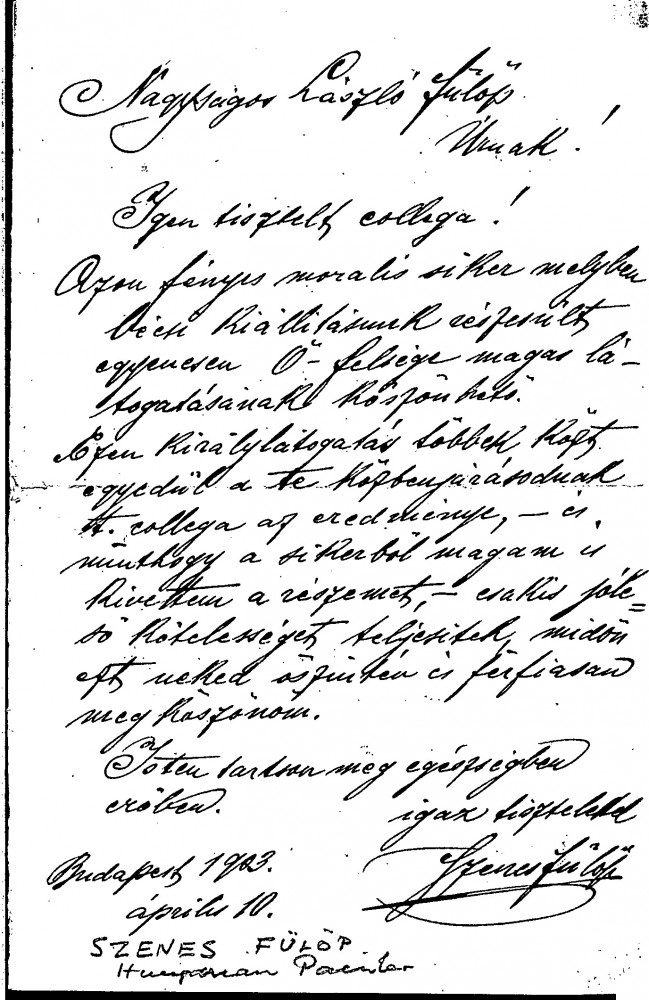 Nagyságos László Fülöp
Úrnak!
Igen tisztelt collega!
Azon fényes moralis siker melyben
bécsi kiállításunk részesült
egyenesen Ő-felsége magas lá-
togatásának köszönhető.
Ezen királylátogatás többek közt
egyedül a te közbenjárásodnak
t. collega az eredménye, – és
minthogy a sikerből magam is
kivettem a részemet, – csakis jóle=
ső kötelességet teljesitek, midőn
ezt neked őszintén és férfiasan
meg köszönöm.
Isten tartson meg egészségben
erőben.
igaz tisztelted
Szenes Fülöp
Budapest 1903.
április 10.
SZENES FÜLÖP
Hungarian Painter